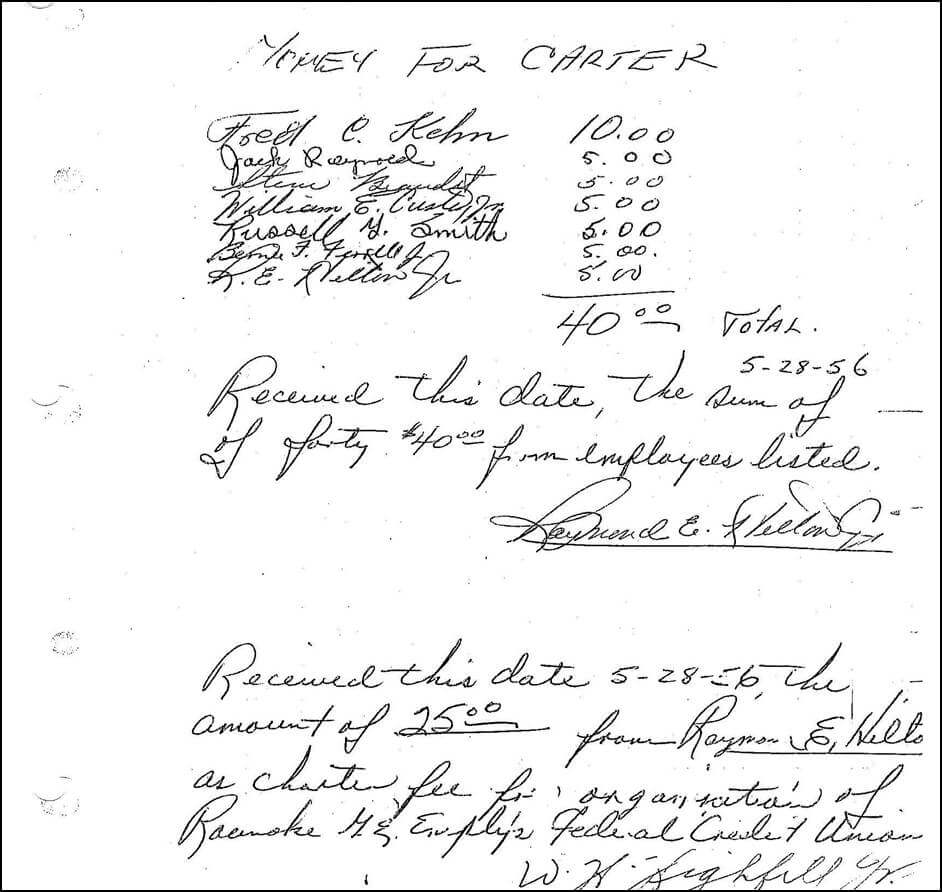 MONEY FOR CARTER
Fred C. Kehn 10.00
Jack Reynolds 5.00
Steve 5.00
William E. Custer, Jr. 5.00
Russell G. Smith 5.00
F. Ferrell Jr 5.00.
R. E. Helton Jr 5.00
40 00 TOTAL.
5-28-56
Received this date, the sum of
of forty $40 00 from employees listed.
Raymond E. Helton Jr
Received this date 5-28-56, the
amount of 25 00 from Raymon E, Helto
as charter fee for organization of
Roanoke G.E. Emply's Federal Credit Union
W. H. Highfill Jr.